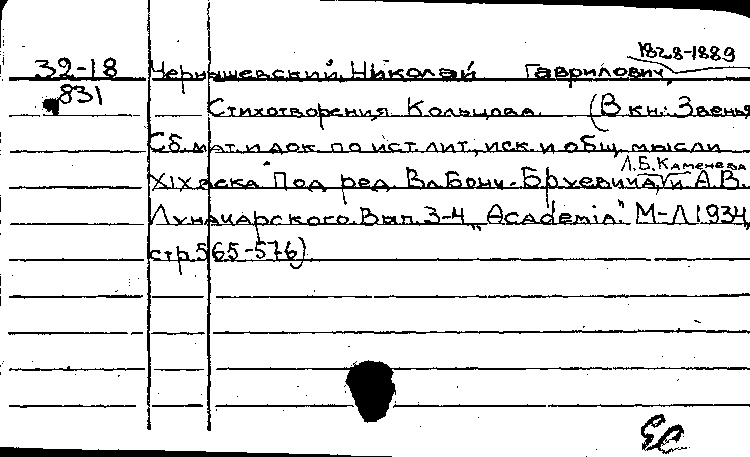 1828-1889
32-18 Чернышевский, Николай Гаврилович,
831 Стихотворения Кольцова. (В кн.: Звенья
Сб. мат. и док. по ист. лит., иск. и общ. мысли
Л.Б. Каменева
XIX века Под ред. Вл. Бонч-Бруевича, и А.В.
Луначарского. Вып. 3-4 „Academia." М-Л 1934,
стр. 565-576).